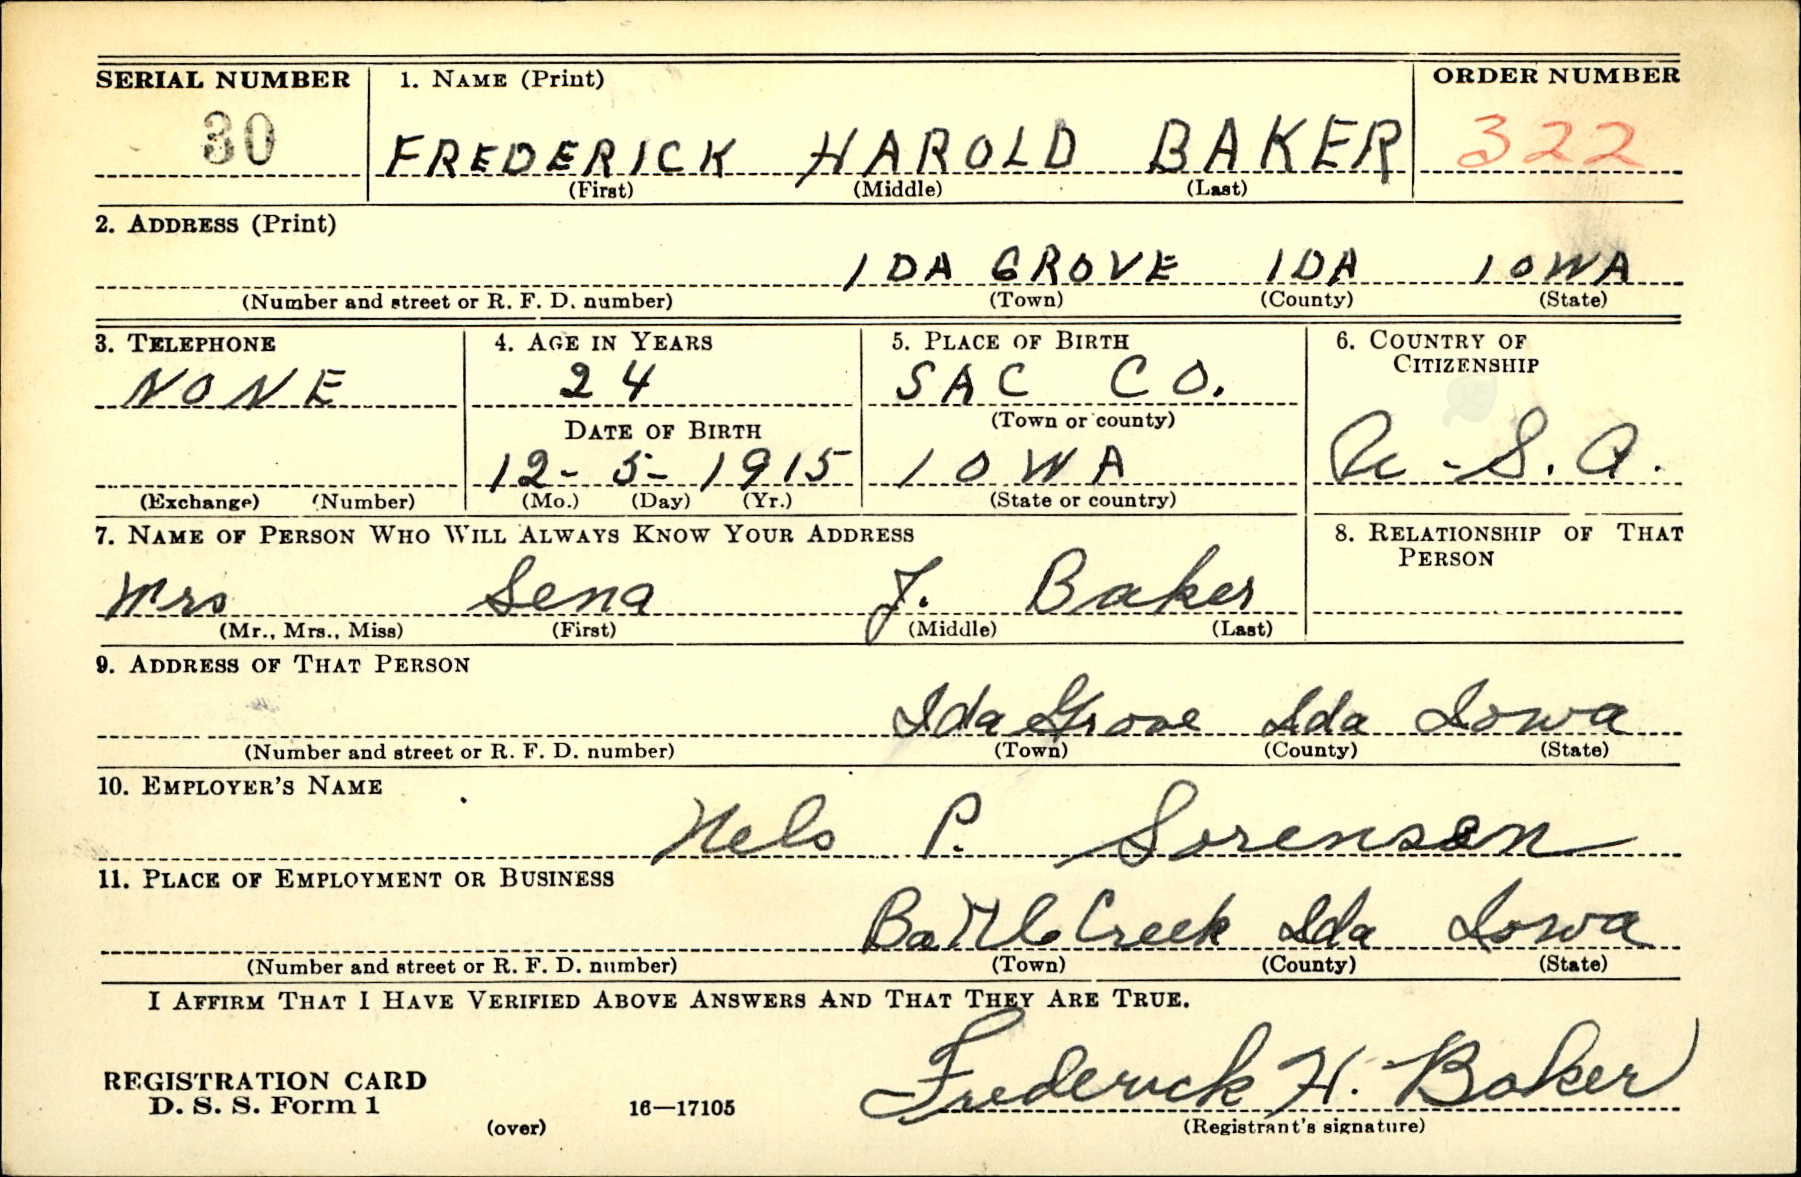 SERIAL NUMBER 1. NAME (Print) ORDER NUMBER
30 FREDERICK HAROLD BAKER 322
(First) (Middle) (Last)
2. ADDRESS (Print)
IDA GROVE IDA IOWA
(Number and street or R. F. D. number) (Town) (County) (State)
3. TELEPHONE 4. AGE IN YEARS 5. PLACE OF BIRTH 6. COUNTRY OF CITIZENSHIP
NONE 24 SAC CO.
(Town or county)
DATE OF BIRTH
12-5-1915 IOWA U.S.A.
(Exchange) (Number) (Mo.) (Day) (Yr.) (State or country)
7. NAME OF PERSON WHO WILL ALWAYS KNOW YOUR ADDRESS 8. RELATIONSHIP OF THAT PERSON
Mrs Sena J. Baker
(Mr., Mrs., Miss) (First) (Middle) (Last)
9. ADDRESS OF THAT PERSON
Ida Grove Ida Iowa
(Number and street or R. F. D. number) (Town) (County) (State)
10. EMPLOYER'S NAME
Nels P. Sorensen
11. PLACE OF EMPLOYMENT OR BUSINESS
Battle Creek Ida Iowa
(Number and street or R. F. D. number) (Town) (County) (State)
I AFFIRM THAT I HAVE VERIFIED ABOVE ANSWERS AND THAT THEY ARE TRUE.
Frederick H. Baker
REGISTRATION CARD
D. S. S. Form 1 16—17105
(over) (Registrant's signature)